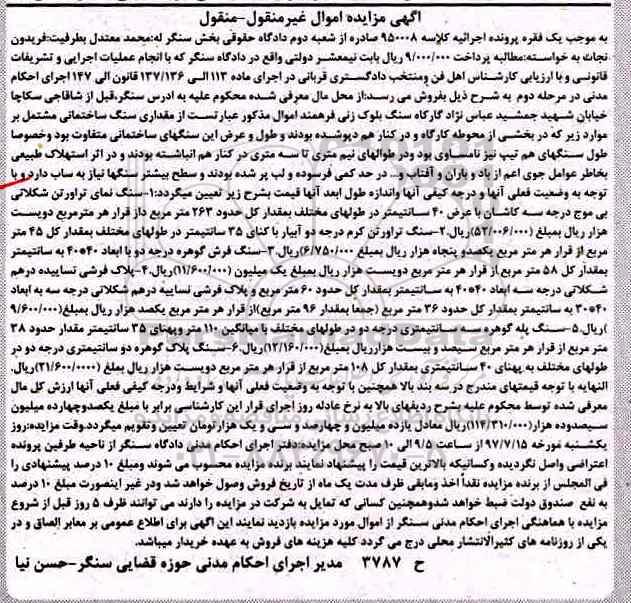 آگهی مزایده اموال غیرمنقول-منقول
به موجب یک فقره پرونده اجرائیه کلاسه ۹۵۰۰۰۸ صادره از شعبه دوم دادگاه حقوقی بخش سنگر له:محمد معتدل بطرفیت:فریدون
نجات به خواسته:مطالبه پرداخت ۹/۰۰۰/۰۰۰ ریال بابت نیمعشر دولتی واقع در دادگاه سنگر که با انجام عملیات اجرایی و تشریفات
قانونی و با ارزیابی کارشناس اهل فن ومنتخب دادگستری قربانی در اجرای ماده ۱۱۳ الی ۱۳۷/۱۳۶ قانون الی ۱۴۷ اجرای احکام
مدنی در مرحله دوم به شرح ذیل بفروش می رسد:از محل مال معرفی شده محکوم علیه به ادرس سنگر،قبل از شاقاجی سکاچا
خیابان شهید جمشید عباس نژاد گارگاه سنگ بلوک زنی فرهمند اموال مذکور عبارتست از مقداری سنگ ساختمانی مشتمل بر
موارد زیر که در بخشی از محوطه کارگاه و در کنار هم دپوشده بودند و طول و عرض این سنگهای ساختمانی متفاوت بود وخصوصا
طول سنگهای هم تیپ نیز نامساوی بود ودر طولهای نیم متری تا سه متری در کنار هم انباشته بودند و در اثر استهلاک طبیعی
بخاطر عوامل جوی اعم از باد و باران و آفتاب و... در حد کمی فرسوده و لب پر شده بودند و سطح بیشتر سنگها نیاز به ساب دارد و با
توجه به وضعیت فعلی آنها و درجه کیفی آنها واندازه طول ابعد آنها قیمت بشرح زیر تعیین میگردد:۱-سنگ نمای تراورتن شکلاتی
بی موج درجه سه کاشان با عرض ۴۰ سانتیمتر در طولهای مختلف بمقدار کل حدود ۲۶۳ متر مربع داز قرار هر مترمربع دویست
هزار ریال بمبلغ (۵۲/۰۰۶/۰۰۰)ریال.۲-سنگ تراورتن کرم درجه دو آبیار با کنای ۳۵ سانتیمتر در طولهای مختلف بمقدار کل ۴۵ متر
مربع از قرار هر متر مربع یکصدو پنجاه هزار ریال بمبلغ (۶/۷۵۰/۰۰۰)ریال.۳-سنگ فرش گوهره درجه دو با ابعاد ۴۰*۴۰ به سانتیمتر
بمقدار کل ۵۸ متر مربع از قرار هر متر مربع دویست هزار ریال بمبلغ یک میلیون (۱۱/۶۰۰/۰۰۰)ریال.۴-پلاک فرشی نساییده درهم
شکلاتی درجه سه ابعاد ۴۰*۴۰ به سانتیمتر بمقدار کل حدود ۶۰ متر مربع و پلاک فرشی نساییه درهم شکلاتی درجه سه به ابعاد
۴۰*۳۰ به سانتیمتر بمقدار کل حدود ۳۶ متر مربع (جمعا بمقدار ۹۶ متر مربع)از قرار هر متر مربع یکصد هزار ریال بمبلغ(۹/۶۰۰/۰۰۰
)ریال.۵-سنگ پله گوهره سه سانتیمتری درجه دو در طولهای مختلف با میانگین ۱۱۰ متر وپهنای ۳۵ سانتیمتر مقدار حدود ۳۸
متر مربع از قرار هر متر مربع سیصد و بیست هزارریال بمبلغ(۱۲/۱۶۰/۰۰۰)ریال.۶-سنگ پلاک گوهره دو سانتیمتری درجه دو در
طولهای مختلف به پهنای ۴۰ سانتیمتری بمقدار کل ۱۰۸ متر مربع از قرار هر متر مربع دویست هزار ریال بمبلغ (۲۱/۶۰۰/۰۰۰)ریال.
النهایه با توجه قیمتهای مندرج در سه بند بالا همچنین با توجه به وضعیت فعلی آنها و شرایط ودرجه کیفی فعلی آنها ارزش کل مال
معرفی شده توسط محکوم علیه بشرح ردیفهای بالا به نرخ عادله روز اجرای قرار این کارشناسی برابر با مبلغ یکصدوچهارده میلیون
سیصدوده هزار(۱۱۴/۳۱۰/۰۰۰)ریال معادل یازده میلیون و چهارصد و سی و یک هزارتومان تعیین وتقویم میگردد.وقت مزایده:روز
یکشنبه مورخه ۹۷/۷/۱۵ از ساعت ۹/۵ الی ۱۰ صبح محل مزایده:دفتر اجرای احکام مدنی دادگاه سنگر از ناحیه طرفین پرونده
اعتراضی واصل نگردیده وکسانیکه بالاترین قیمت را پیشنهاد نمایند برنده مزایده محسوب می شوند ومبلغ ۱۰ درصد پیشنهادی را
فی المجلس از برنده مزایده نقداً اخذ ومابقی ظرف مدت یک ماه از تاریخ فروش وصول خواهد شد ودر غیر اینصورت مبلغ ۱۰ درصد
به نفع صندوق دولت ضبط خواهد شدوهمچنین کسانی که تمایل به شرکت در مزایده را دارند می توانند ظرف ۵ روز قبل از شروع
مزایده با هماهنگی اجرای احکام مدنی سنگر از اموال مورد مزایده بازدید نمایند این آگهی برای اطلاع عمومی بر معابر الصاق و در
یکی از روزنامه های کثیرالانتشار محلی درج می گردد کلیه هزینه های فروش به عهده خریدار میباشد.
ح ۳۷۸۷ مدیر اجرای احکام مدنی حوزه قضایی سنگر-حسن نیا